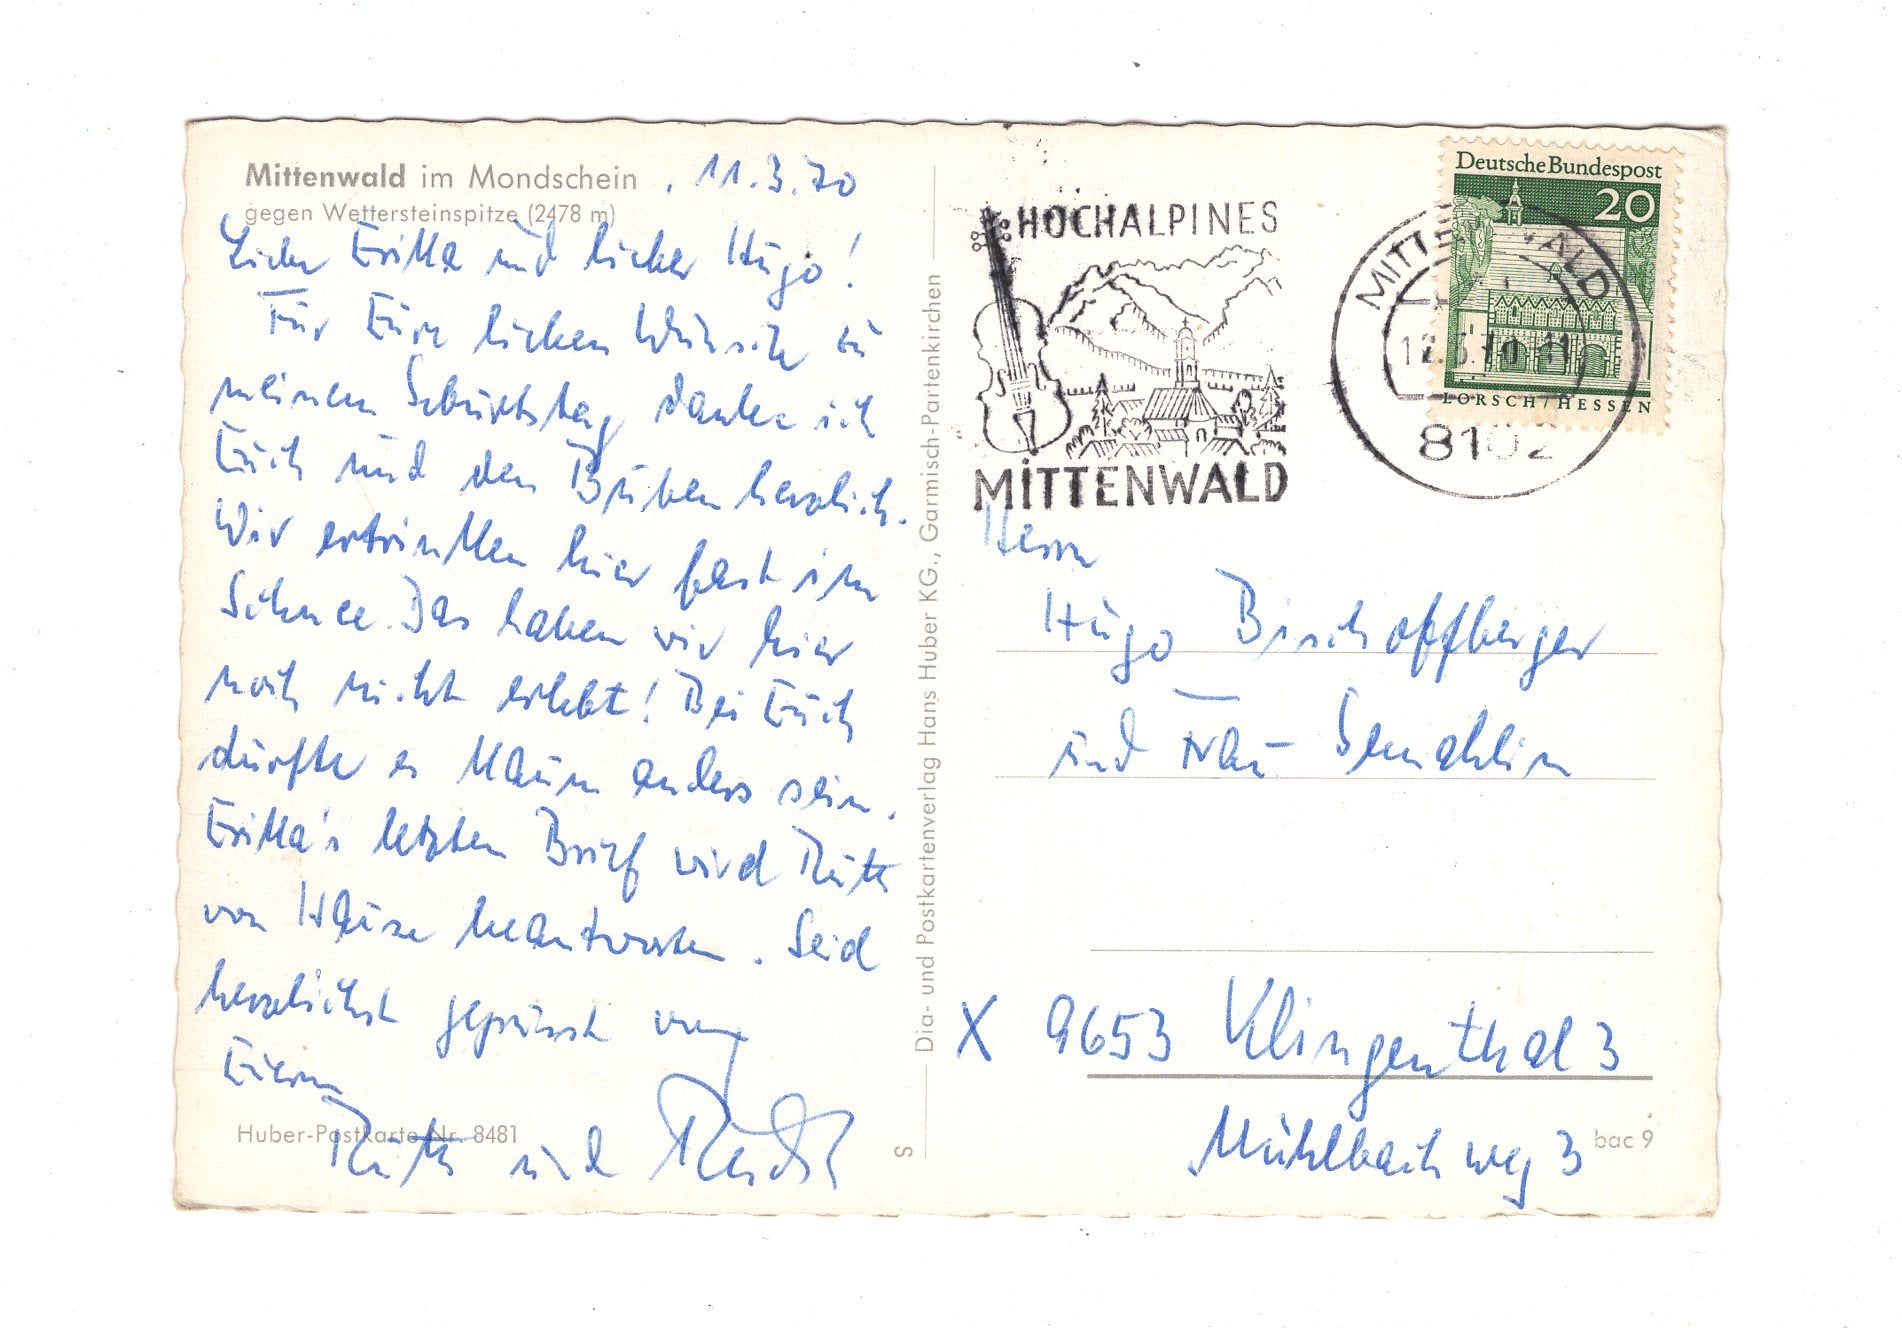 Mittenwald im Mondschein . 11.3.70
gegen Wettersteinspitze (2478 m)
Liebe Erikka und lieber Hugo!
Für Eure lieben Wünsche zu
meinem Geburtstag danke ich
Euch und den Buben herzlich.
Wir ertrinkken hier fast im
Schnee. Das haben wir hier
noch nicht erlebt! Bei Euch
dürfte es kaum anders sein.
Erikka's letzten Brief wird Ruth
von Hause beantworten. Seid
herzlichst gegrüsst von
Euern
Ruth und
Huber-Postkarte Nr. 8481
Dia- und Postkartenverlag Hans Huber KG., Garmisch-Partenkirchen
S
HOCHALPINES
MITTENWALD
MITTENWALD
12.3.70 11
8102
Deutsche Bundespost
20
LORSCH/HESSEN
Herrn
Hugo Bischoffberger
und Frau Gemahlin
X 9653 Klingenthal 3
Mühlbachweg 3
bac 9